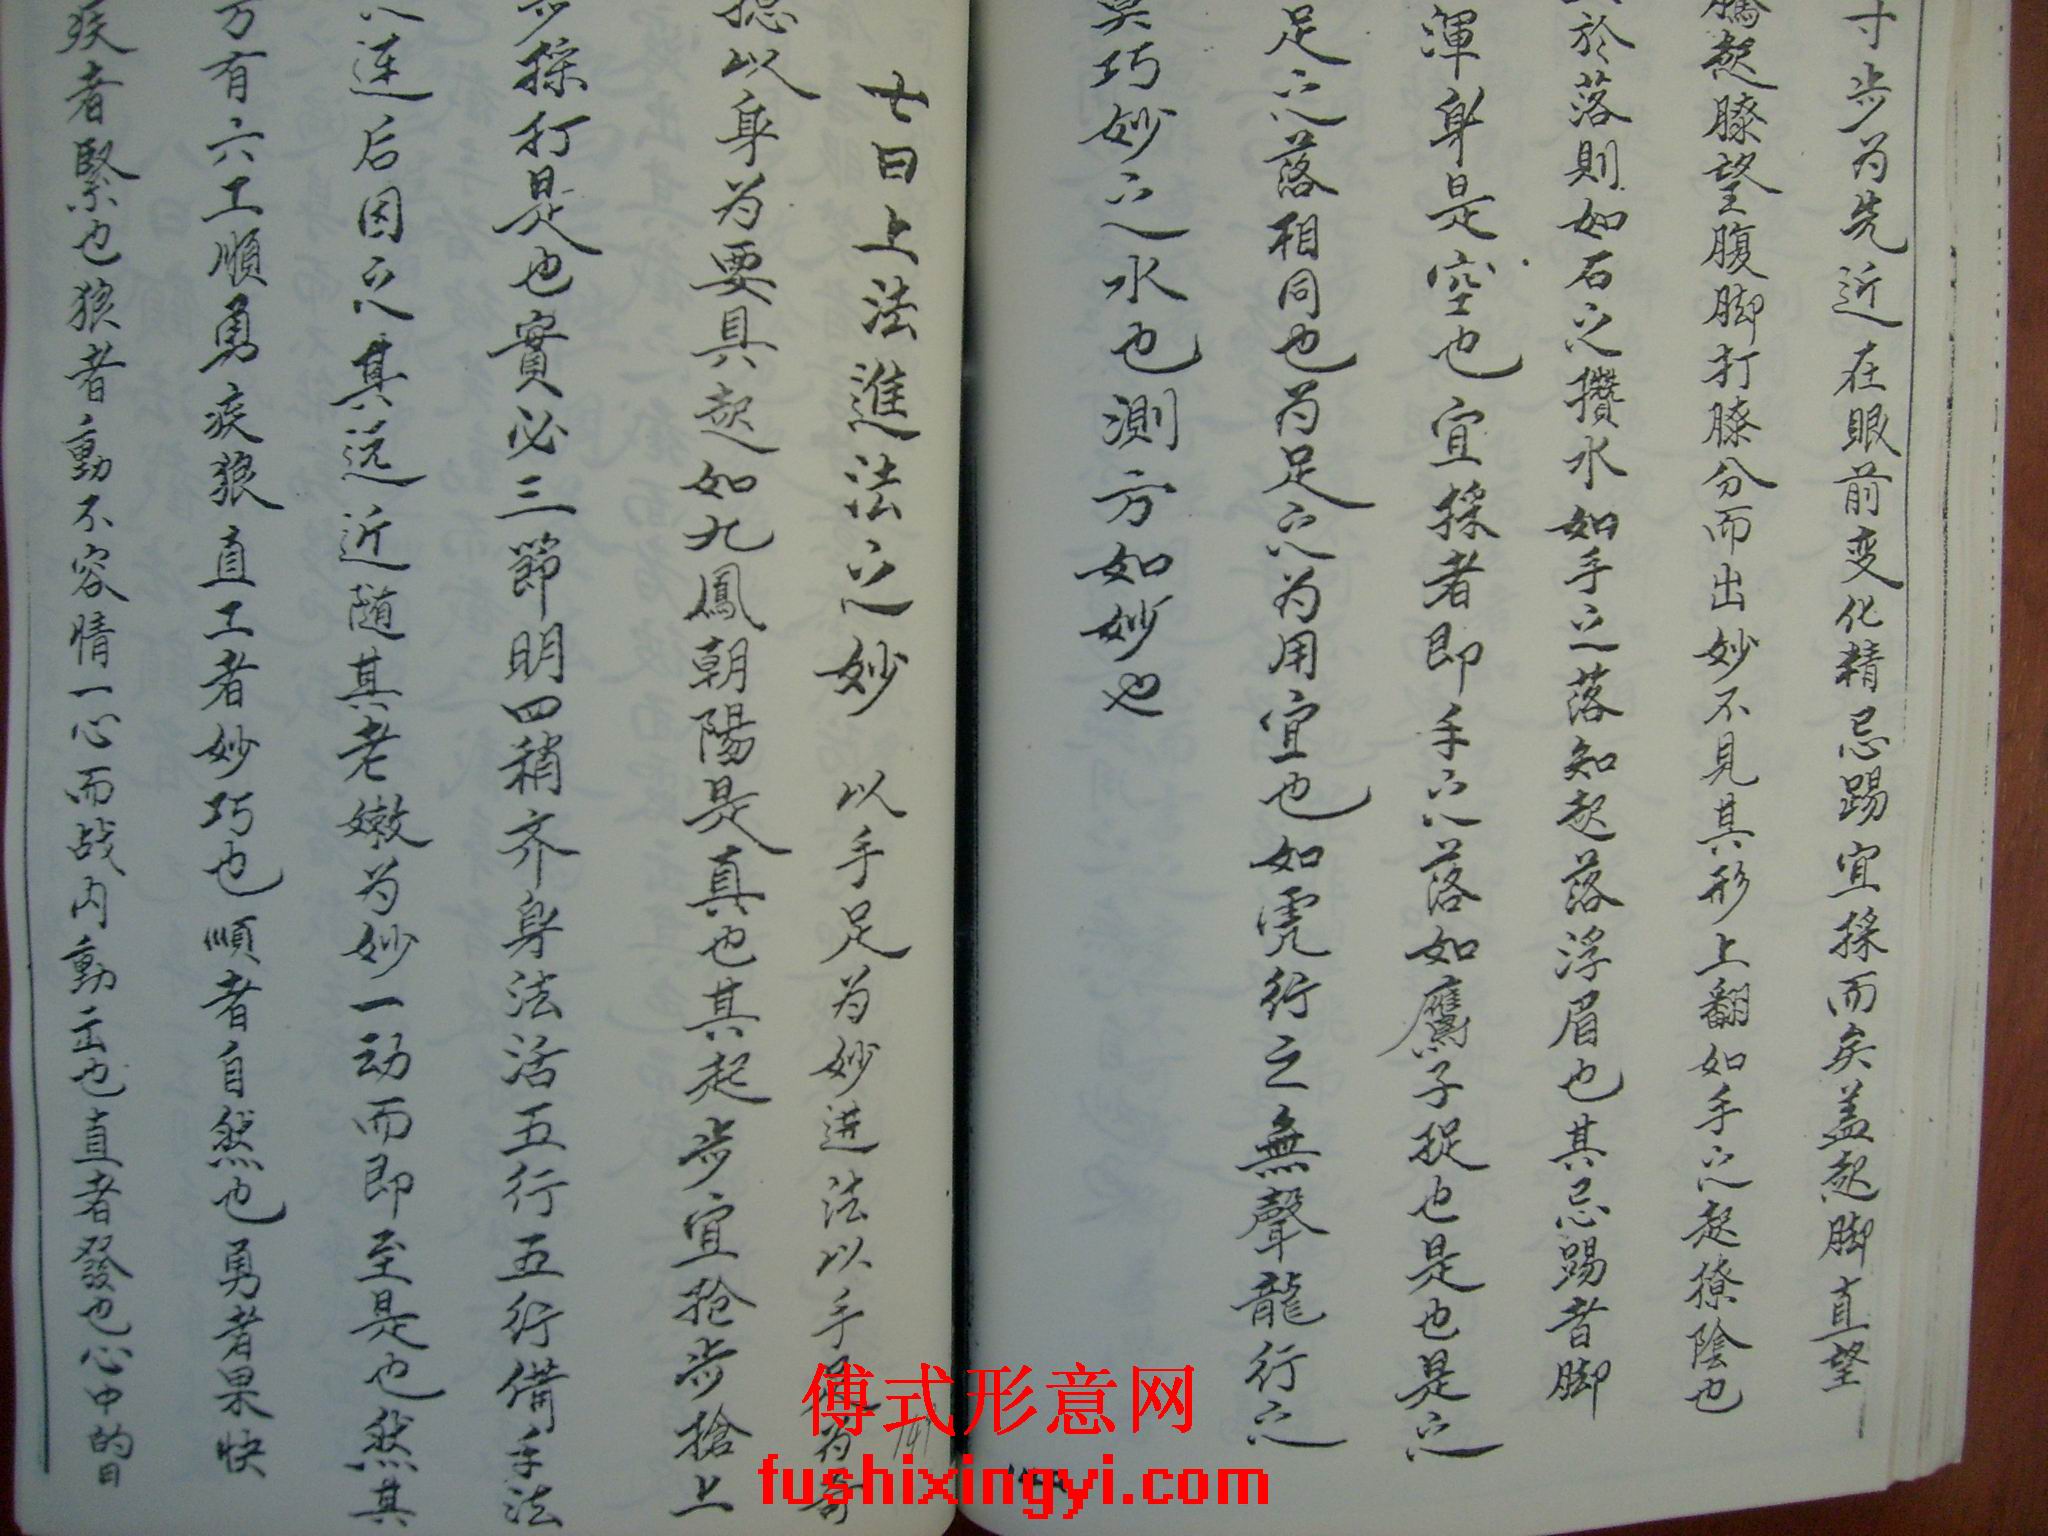 寸步为先近在眼前变化精忌踢宜採而矣盖起脚直望
膝望腹脚打膝分而出妙不見其形上翻如手之起撩陰也
於落則如石之攢水如手之落知起落浮眉也其忌踢者脚
渾身是空也宜採者即手之落如鷹子捉也是也是之
足之落相同也为足之为用宜也如虎行之無聲龍行之
莫巧妙之水也測方如妙也
七曰上法進法之妙 以手足为妙进法以手足为奇
總以身为要具起如九鳳朝陽是真也其起步宜抢步搶上
步採打是也實必三節明四稍齐身法活五行五行備手法
连后因之其远近随其老嫩为妙一动而即至是也然其
方有六工順勇疾狼直工者妙巧也順者自然也勇者果快
疾者緊也狼者動不容情一心而战内動正也直者發也心中的目
傅式形意网
fushixingyi.com